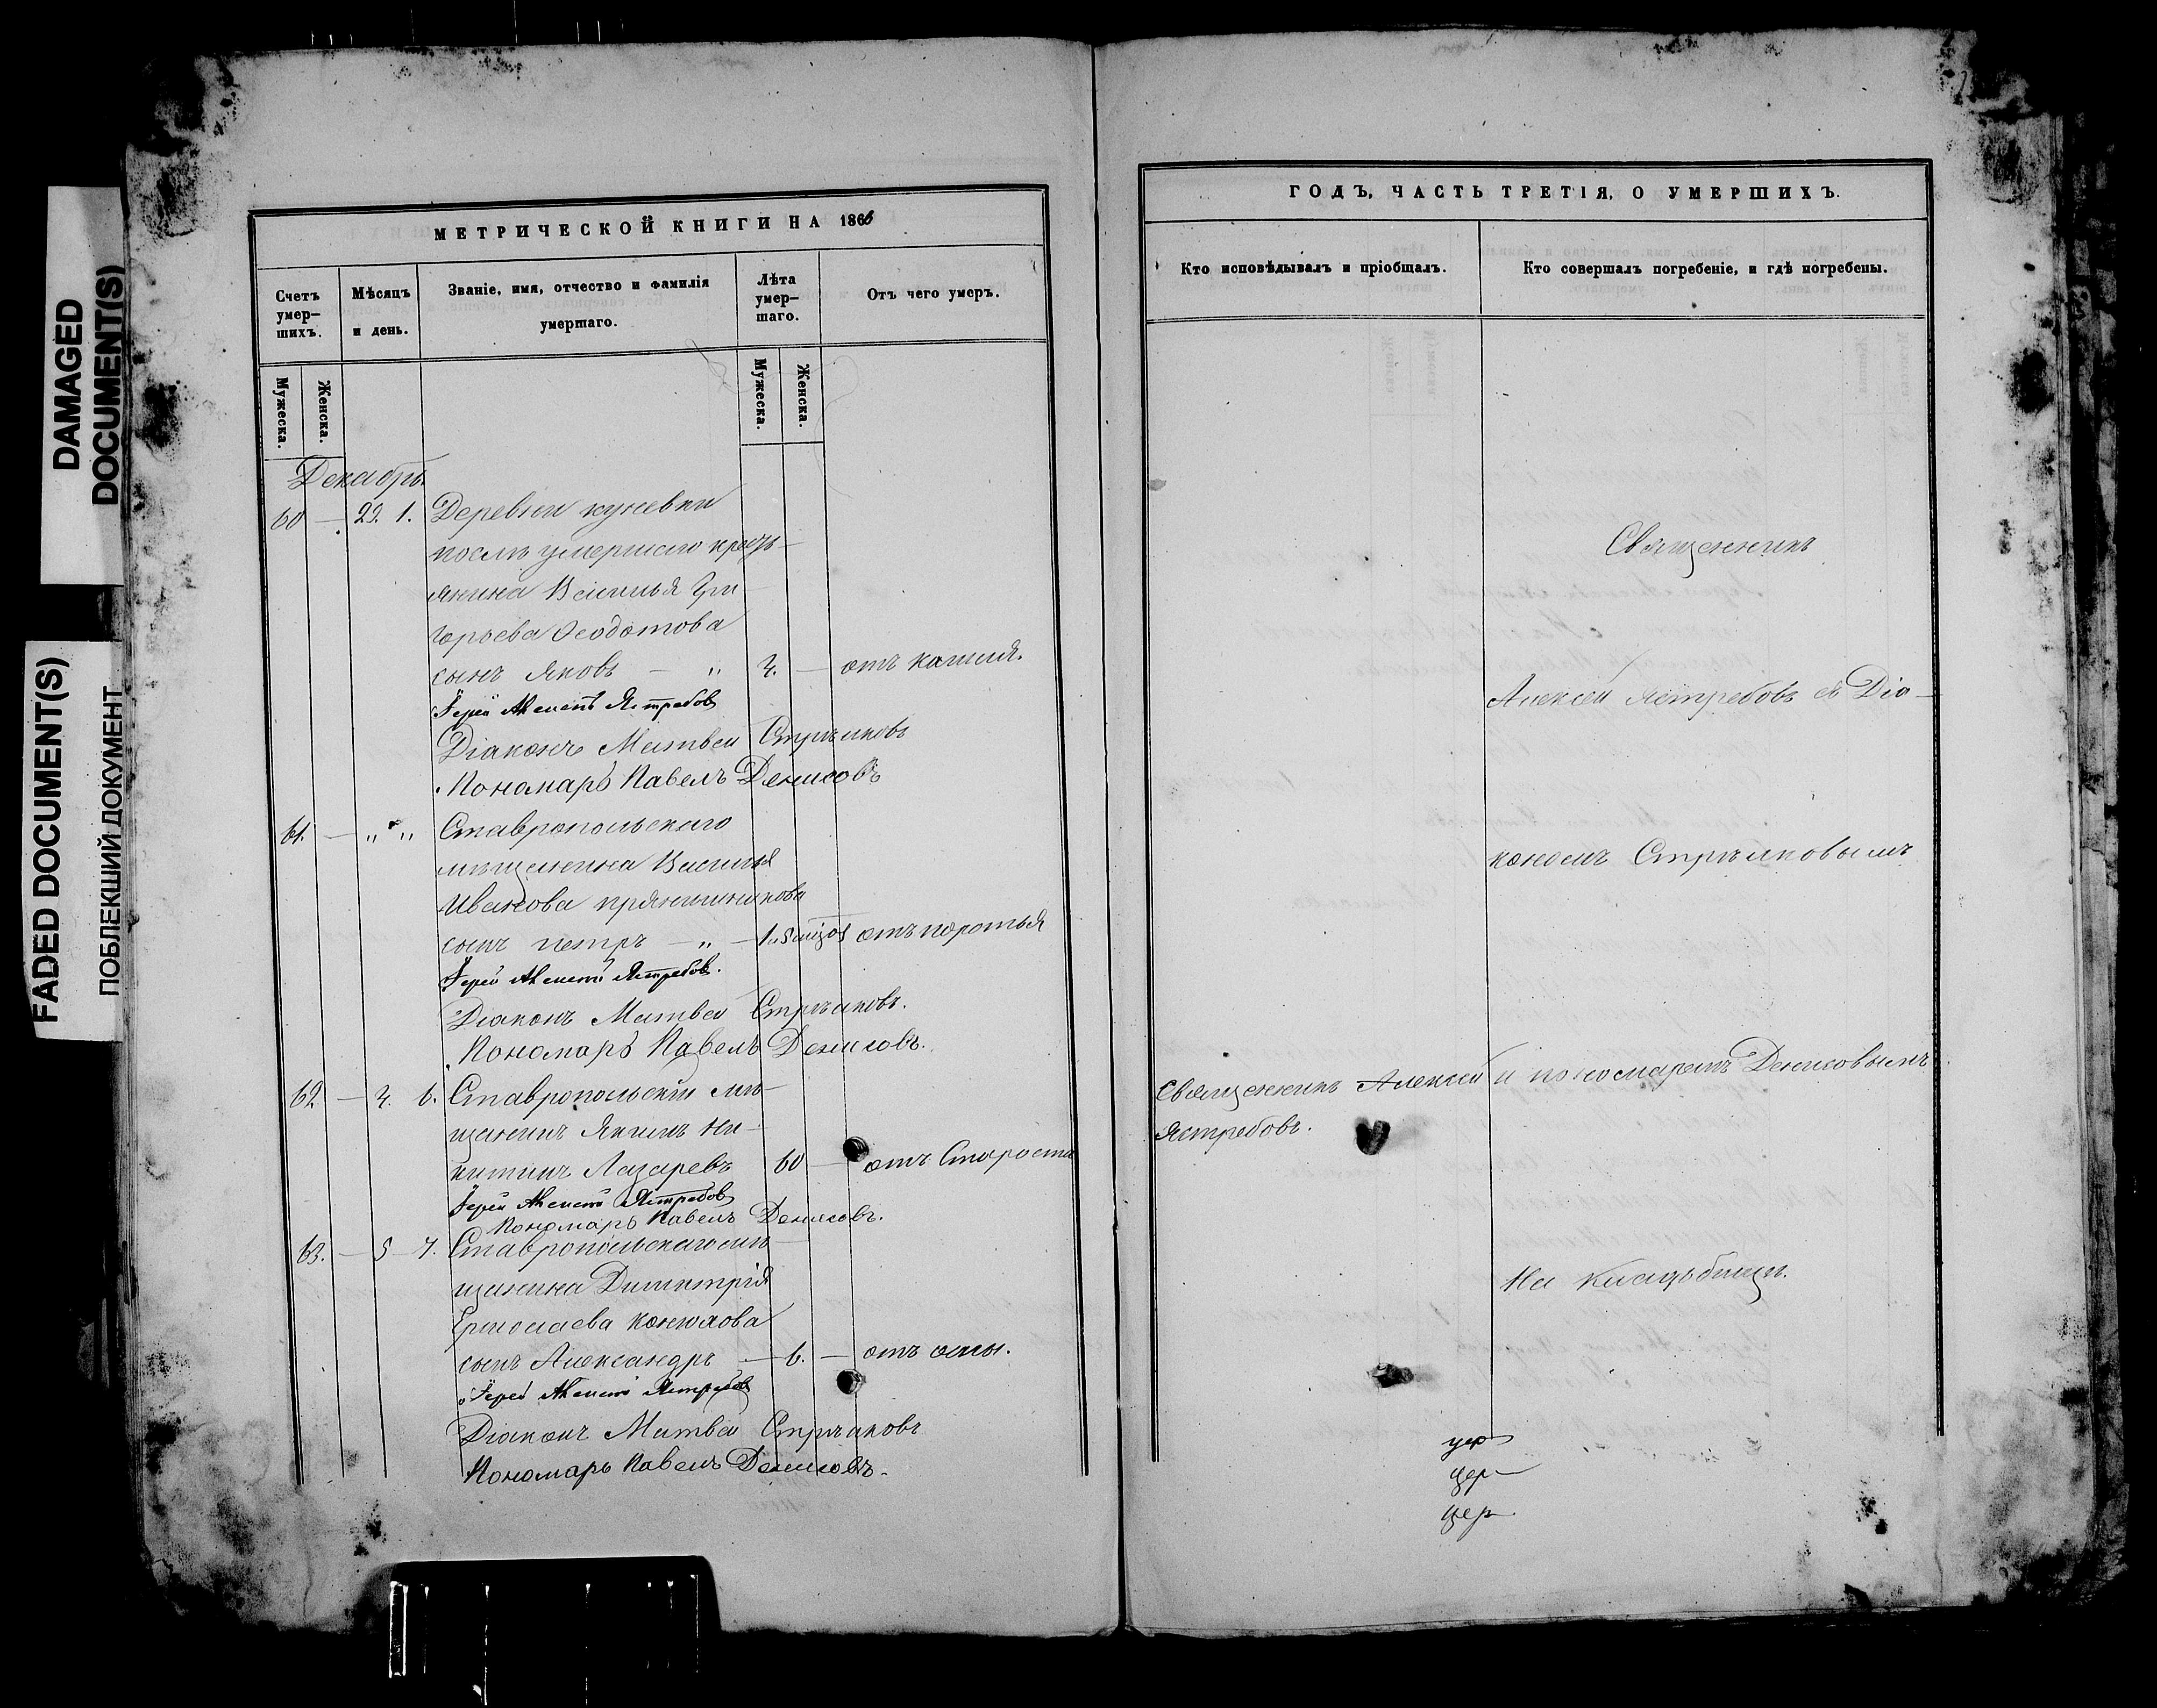 DAMAGED
DOCUMENT(S)
FADED DOCUMENT(S)
ПОБЛЕКШИЙ ДОКУМЕНТ
МЕТРИЧЕСКОЙ КНИГИ НА 1866
Счетъ умер-шихъ.
Мѣсяцъ и день.
Званіе, имя, отчество и фамилія умершаго.
Лѣта умер-шаго.
Отъ чего умеръ.
Мужеска.
Женска.
Мужеска.
Женска.
Декабрь
60 — 29. 1. Деревни
послѣ умершаго кресть-
янина Василья Гри
горьева Ѳеодотова
сынъ Яковъ — " — отъ кашля.
Іерей Алексей Ястребов
Діаконъ Матвеи Стрѣлковъ
Пономарь Павелъ Денисовъ
61. — " " Ставропольскаго
мѣщанина Василья
Иванова прянишникова
сынъ петръ — " —
Іерей Алексей Ястребов.
Діаконъ Матвеи Стрѣлковъ.
Пономарь Павелъ Денисовъ.
62. — 4. 6. Ставропольскіи мѣ-
щанинъ Якимъ Ни-
китинъ Лазаревъ 60 — отъ Старости
Іерей Алексей Ястребов
Пономарь Павелъ Денисовъ.
63. — 5 — 7. Ставропольскаго мѣ
щанина Димитрія
Ермолаева
сынъ Александръ — 6. — отъ оспы.
Іерей Алексей Ястребов
Діаконъ Матвеи Стрѣлковъ
Пономарь Павелъ Денисовъ.
ГОДЪ, ЧАСТЬ ТРЕТІЯ, О УМЕРШИХЪ.
Кто исповѣдывалъ и пріобщалъ.
Кто совершалъ погребеніе, и гдѣ погребены.
Священникъ
Алексей Ястребовъ съ Діа-
кономъ Стрѣлковымъ
и пономаремъ Денисовымъ
Священникъ Алексей
Ястребовъ.
На кладьбищѣ.